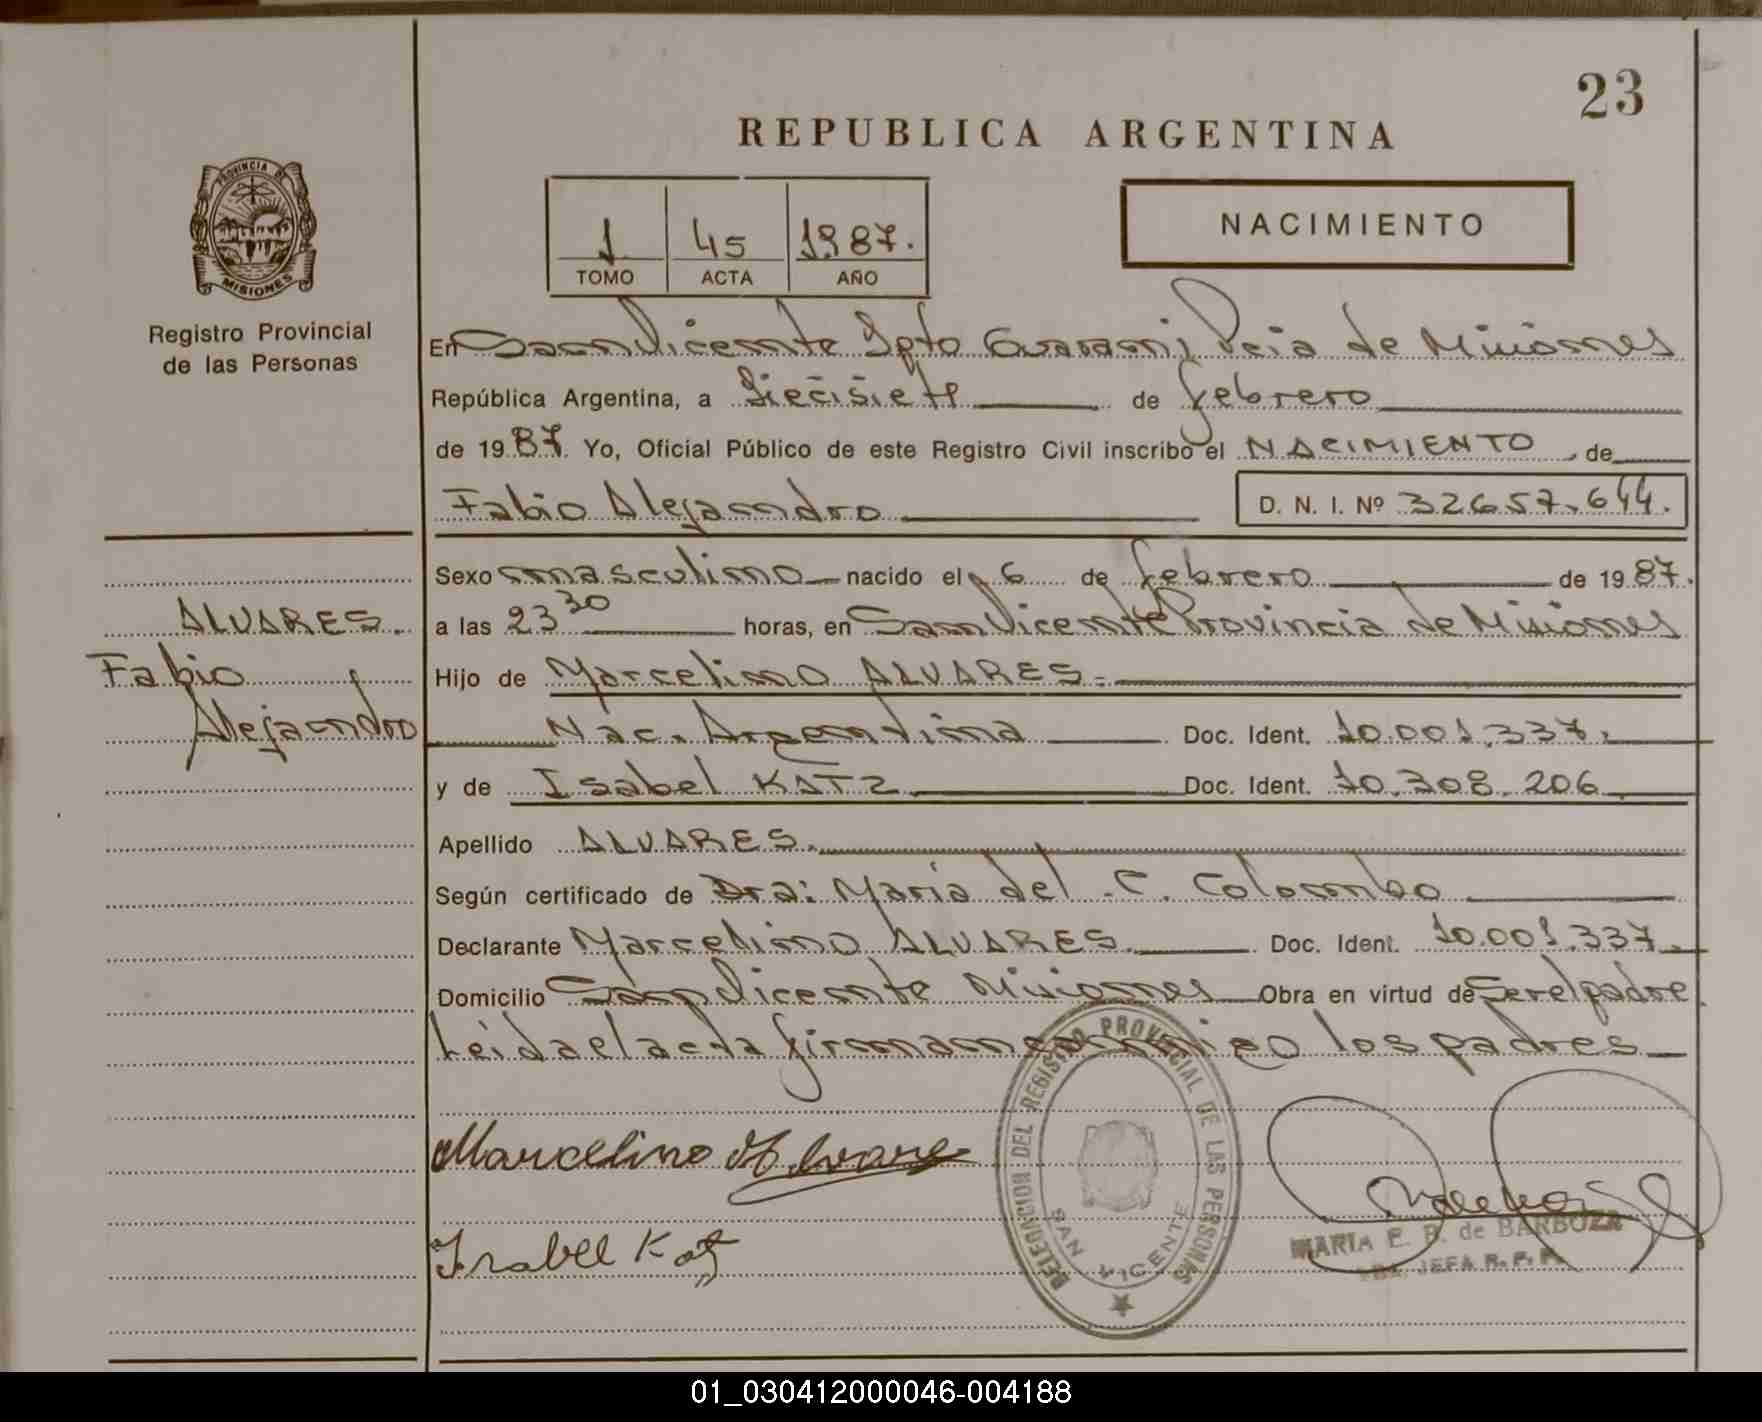 23
REPUBLICA ARGENTINA
PROVINCIA DE
MISIONES
Registro Provincial
de las Personas
1 45 1987.
TOMO ACTA AÑO
NACIMIENTO
En San Vicente Dpto Guarani, Pcia de Misiones
República Argentina, a Diecisiete de febrero
de 1987. Yo, Oficial Público de este Registro Civil inscribo el NACIMIENTO, de
Fabio Alejandro D. N. I. Nº 32657.644.
Sexo masculino nacido el 6 de febrero de 1987.
ALVARES.
Fabio
Alejandro
a las 23 30 horas, en San Vicente Provincia de Misiones
Hijo de Marcelino ALVARES.=
Nac. Argentina Doc. Ident. 10.001.337.
y de Isabel KATZ Doc. Ident. 10.308.206
Apellido ALVARES.
Según certificado de Dra: Maria del .C. Colombo
Declarante Marcelino ALVARES. Doc. Ident. 10.001.337.
Domicilio San Vicente Misiones Obra en virtud de Ser el padre.
Leida el acta firman conmigo los padres
Marcelino Alvare
Isabel Katz
DELEGACION DEL REGISTRO PROVINCIAL DE LAS PERSONAS
SAN VICENTE
MARIA E. B. de BARBOZA
JEFA R. P. P.
01_030412000046-004188